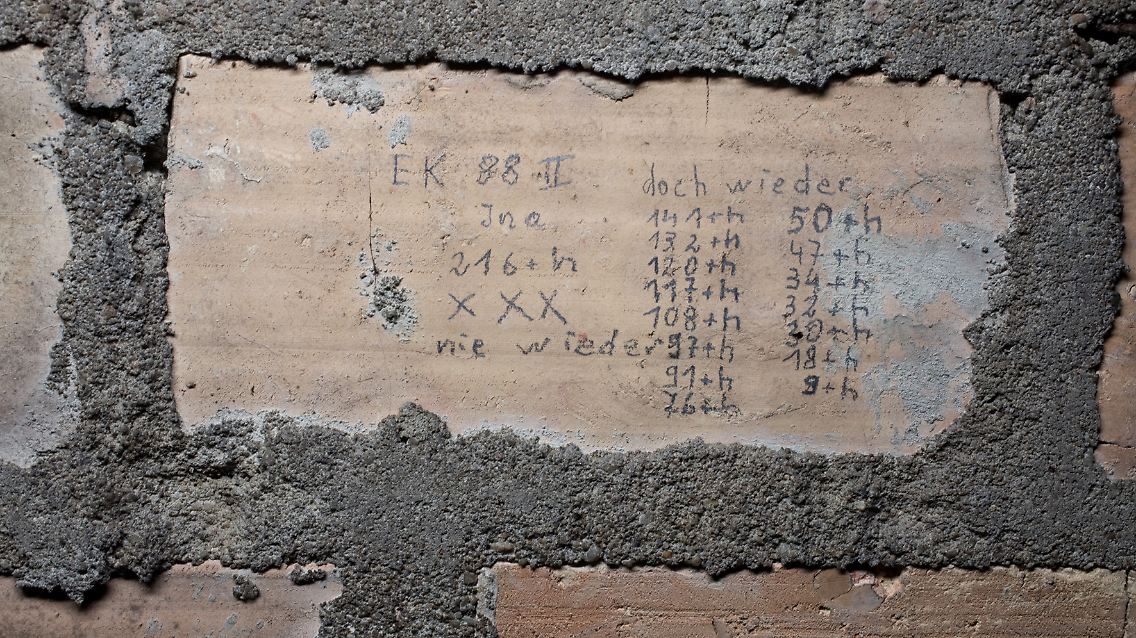 EK 88 II
Ina
216+h
X XX
nie wieder
doch wieder
141+h
132+h
120+h
117+h
108+h
97+h
91+h
76+h
50+h
47+h
34+h
32+h
30+h
18+h
9+h